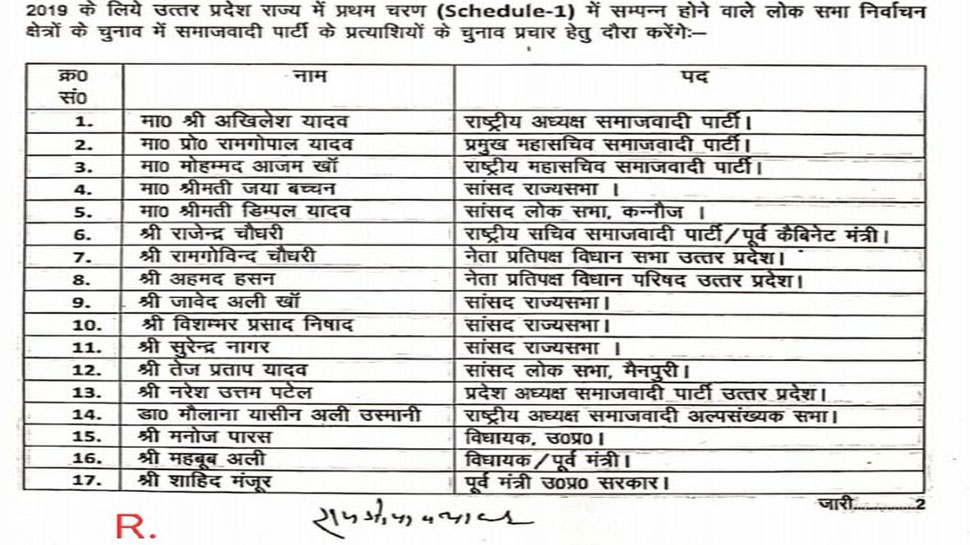 2019 के लिये उत्तर प्रदेश राज्य में प्रथम चरण (Schedule-1) में सम्पन्न होने वाले लोक सभा निर्वाचन
क्षेत्रों के चुनाव में समाजवादी पार्टी के प्रत्याशियों के चुनाव प्रचार हेतु दौरा करेंगेः–
क्र0 सं0 नाम पद
1. मा0 श्री अखिलेश यादव राष्ट्रीय अध्यक्ष समाजवादी पार्टी।
2. मा0 प्रो0 रामगोपाल यादव प्रमुख महासचिव समाजवादी पार्टी।
3. मा0 मोहम्मद आजम खॉ राष्ट्रीय महासचिव समाजवादी पार्टी।
4. मा0 श्रीमती जया बच्चन सांसद राज्यसभा ।
5. मा0 श्रीमती डिम्पल यादव सांसद लोक सभा, कन्नौज ।
6. श्री राजेन्द्र चौधरी राष्ट्रीय सचिव समाजवादी पार्टी/पूर्व कैबिनेट मंत्री।
7. श्री रामगोविन्द चौधरी नेता प्रतिपक्ष विधान सभा उत्तर प्रदेश।
8. श्री अहमद हसन नेता प्रतिपक्ष विधान परिषद उत्तर प्रदेश।
9. श्री जावेद अली खॉ सांसद राज्यसभा।
10. श्री विशम्भर प्रसाद निषाद सांसद राज्यसभा।
11. श्री सुरेन्द्र नागर सांसद राज्यसभा ।
12. श्री तेज प्रताप यादव सांसद लोक सभा, मैनपुरी।
13. श्री नरेश उत्तम पटेल प्रदेश अध्यक्ष समाजवादी पार्टी उत्तर प्रदेश।
14. डा0 मौलाना यासीन अली उस्मानी राष्ट्रीय अध्यक्ष समाजवादी अल्पसंख्यक सभा।
15. श्री मनोज पारस विधायक, उ0प्र0।
16. श्री महबूब अली विधायक/पूर्व मंत्री।
17. श्री शाहिद मंजूर पूर्व मंत्री उ0प्र0 सरकार।
जारी.........2
R.